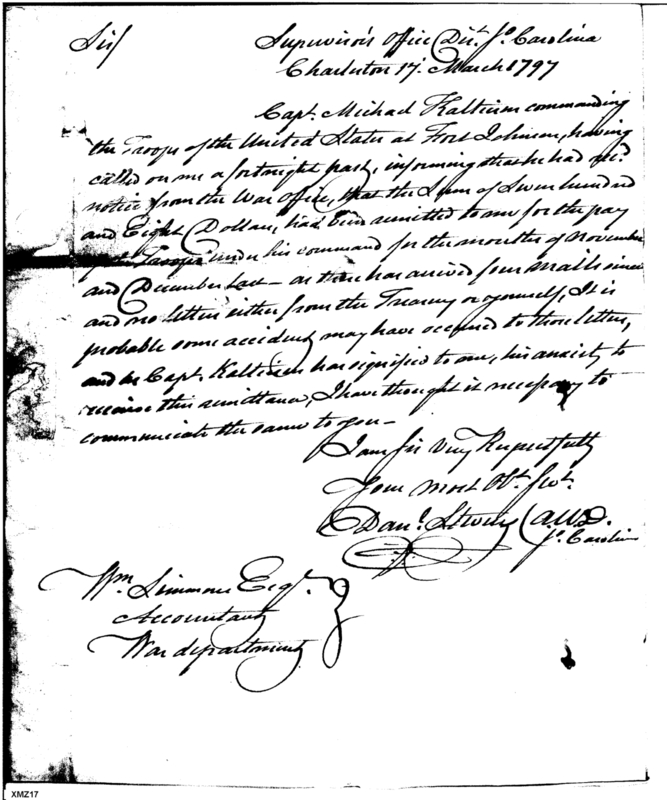 Sir/ Supervisor's Office Dist. So. Carolina
Charleston 17. March 1797
Capt. Michael Kalteisen commanding
the Troops of the United States at Fort Johnson, having
called on me a fortnight past, informing that he had rec'd
notice from the War Office, that the Sum of Seven hundred
and Eight Dollars, had been remitted to me for the pay
of the Troops under his command for the months of November
and December last - as there has arrived four Mails since
and no letters either from the Treasury or yourself, It is
probable some accident may have occured to those letters,
and as Capt. Kalteisen has signified to me, his anxiety to
receive this remittance, I have thought it necessary to
communicate the same to you -
I am Sir Very Respectfully
Your most Obt. Svt.
Danl. Stevens
So. Carolina
Wm. Simmons Esqr.
Accountant
War department
XMZ17